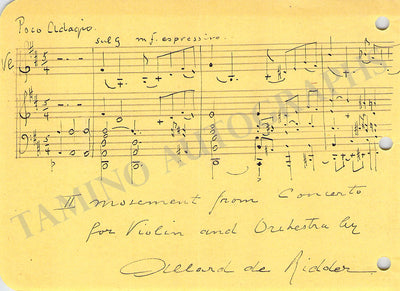 Poco Adagio.
sul g mf. espressivo.
II movement from Concerto
for Violin and Orchestra by
Allard de Ridder
TAMINO AUTOGRAPHS